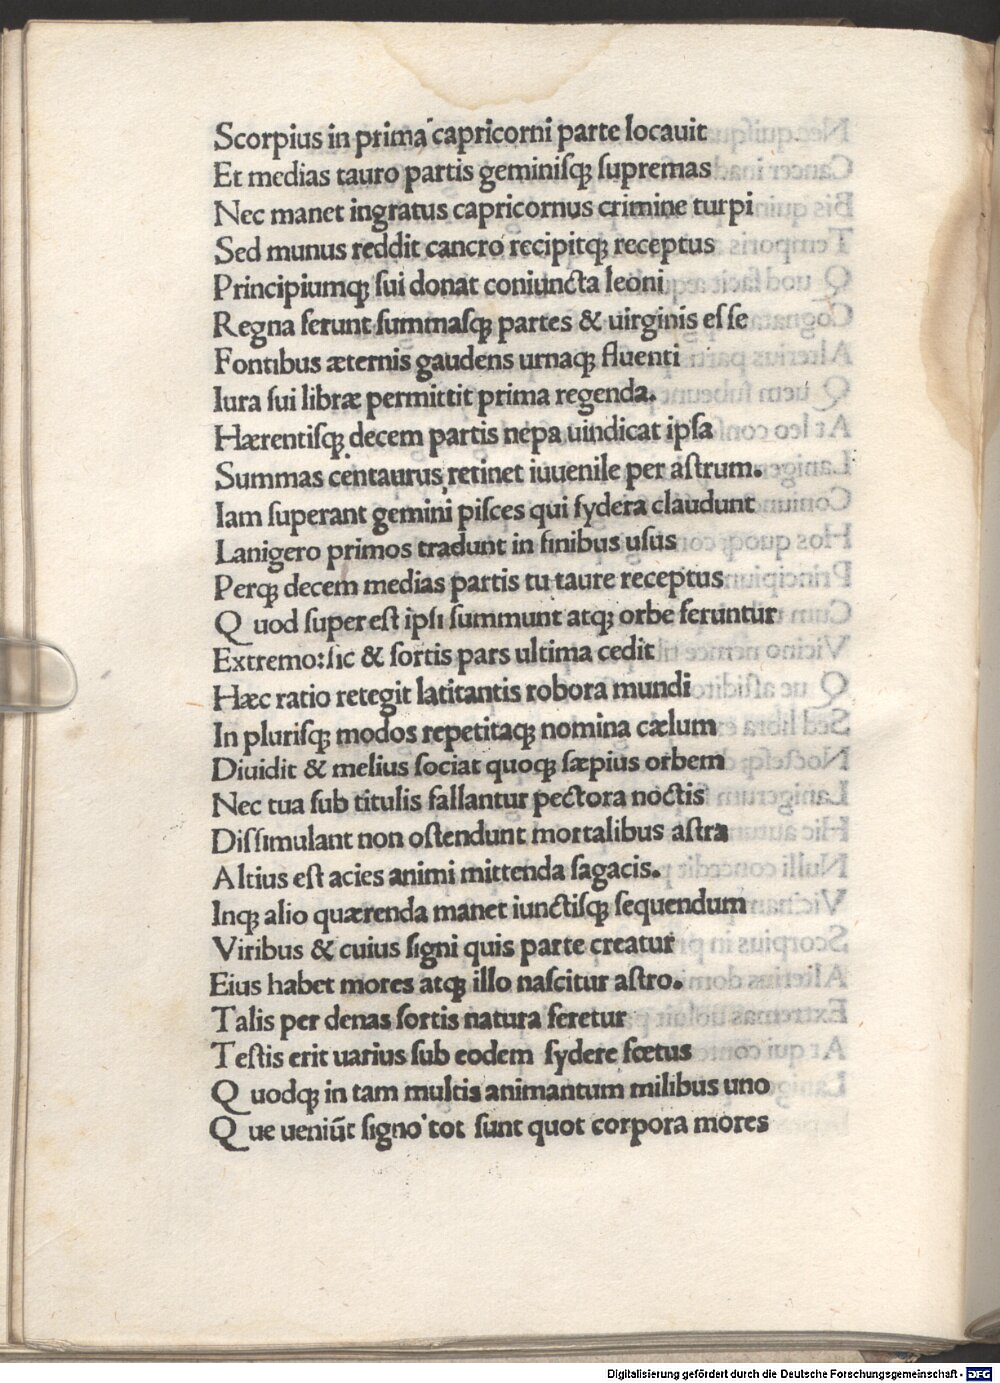 Scorpius in prima capricorni parte locauit
Et medias tauro partis geminiſqꝫ ſupremas
Nec manet ingratus capricornus crimine turpi
Sed munus reddit cancro recipitqꝫ receptus
Principiumqꝫ ſui donat coniuncta leoni
Regna ferunt ſummaſqꝫ partes & uirginis eſſe
Fontibus æternis gaudens urnaqꝫ fluenti
Iura ſui libræ permittit prima regenda.
Hærentiſqꝫ decem partis nepa uindicat ipſa
Summas centaurus retinet iuuenile per aſtrum.
Iam ſuperant gemini piſces qui ſydera claudunt
Lanigero primos tradunt in finibus uſus
Perqꝫ decem medias partis tu taure receptus
Quod ſuper eſt ipſi ſummunt atqꝫ orbe feruntur
Extremo: ſic & ſortis pars ultima cedit
Hæc ratio retegit latitantis robora mundi
In pluriſqꝫ modos repetitaqꝫ nomina cælum
Diuidit & melius ſociat quoqꝫ ſæpius orbem
Nec tua ſub titulis fallantur pectora noctis
Diſſimulant non oſtendunt mortalibus aſtra
Altius eſt acies animi mittenda ſagacis.
Inqꝫ alio quærenda manet iunctiſqꝫ ſequendum
Viribus & cuius ſigni quis parte creatur
Eius habet mores atqꝫ illo naſcitur aſtro.
Talis per denas ſortis natura feretur
Teſtis erit uarius ſub eodem ſydere fœtus
Quodqꝫ in tam multis animantum milibus uno
Que ueniūt ſigno tot ſunt quot corpora mores
Digitalisierung gefördert durch die Deutsche Forschungsgemeinschaft - DFG